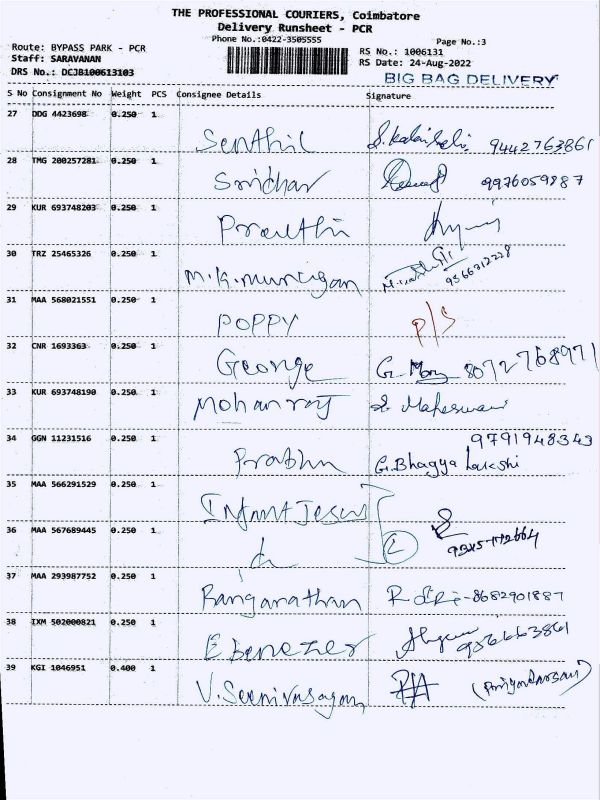 THE PROFESSIONAL COURIERS, Coimbatore
Delivery Runsheet - PCR
Phone No.:0422-3505555
Page No.:3
Route: BYPASS PARK - PCR
RS No.: 1006131
Staff: SARAVANAN
RS Date: 24-Aug-2022
DRS No.: DCJB100613103
BIG BAG DELIVERY
S No Consignment No Weight PCS Consignee Details Signature
27 DDG 4423698 0.250 1
Senthil 9442763861
28 TMG 200257281 0.250 1
Sridhar 9976059887
29 KUR 693748203 0.250 1
Preethi
30 TRZ 25465326 0.250 1
M.K.Murugan 9566312228
31 MAA 568021551 0.250 1
POPPY P/S
32 CNR 1693363 0.250 1
George G. Mary 8072768971
33 KUR 693748190 0.250 1
Mohanraj S. Maheswari
34 GGN 11231516 0.250 1
9791948343
Prabhu G.Bhagya Lakshi
35 MAA 566291529 0.250 1
Infant Jesus
36 MAA 567689445 0.250 1
2
37 MAA 293987752 0.250 1
Ranganathan 8682901887
38 IXM 502000821 0.250 1
Ebenezer
39 KGI 1046951 0.400 1
V. Seenivasagan (Priyadarsan)